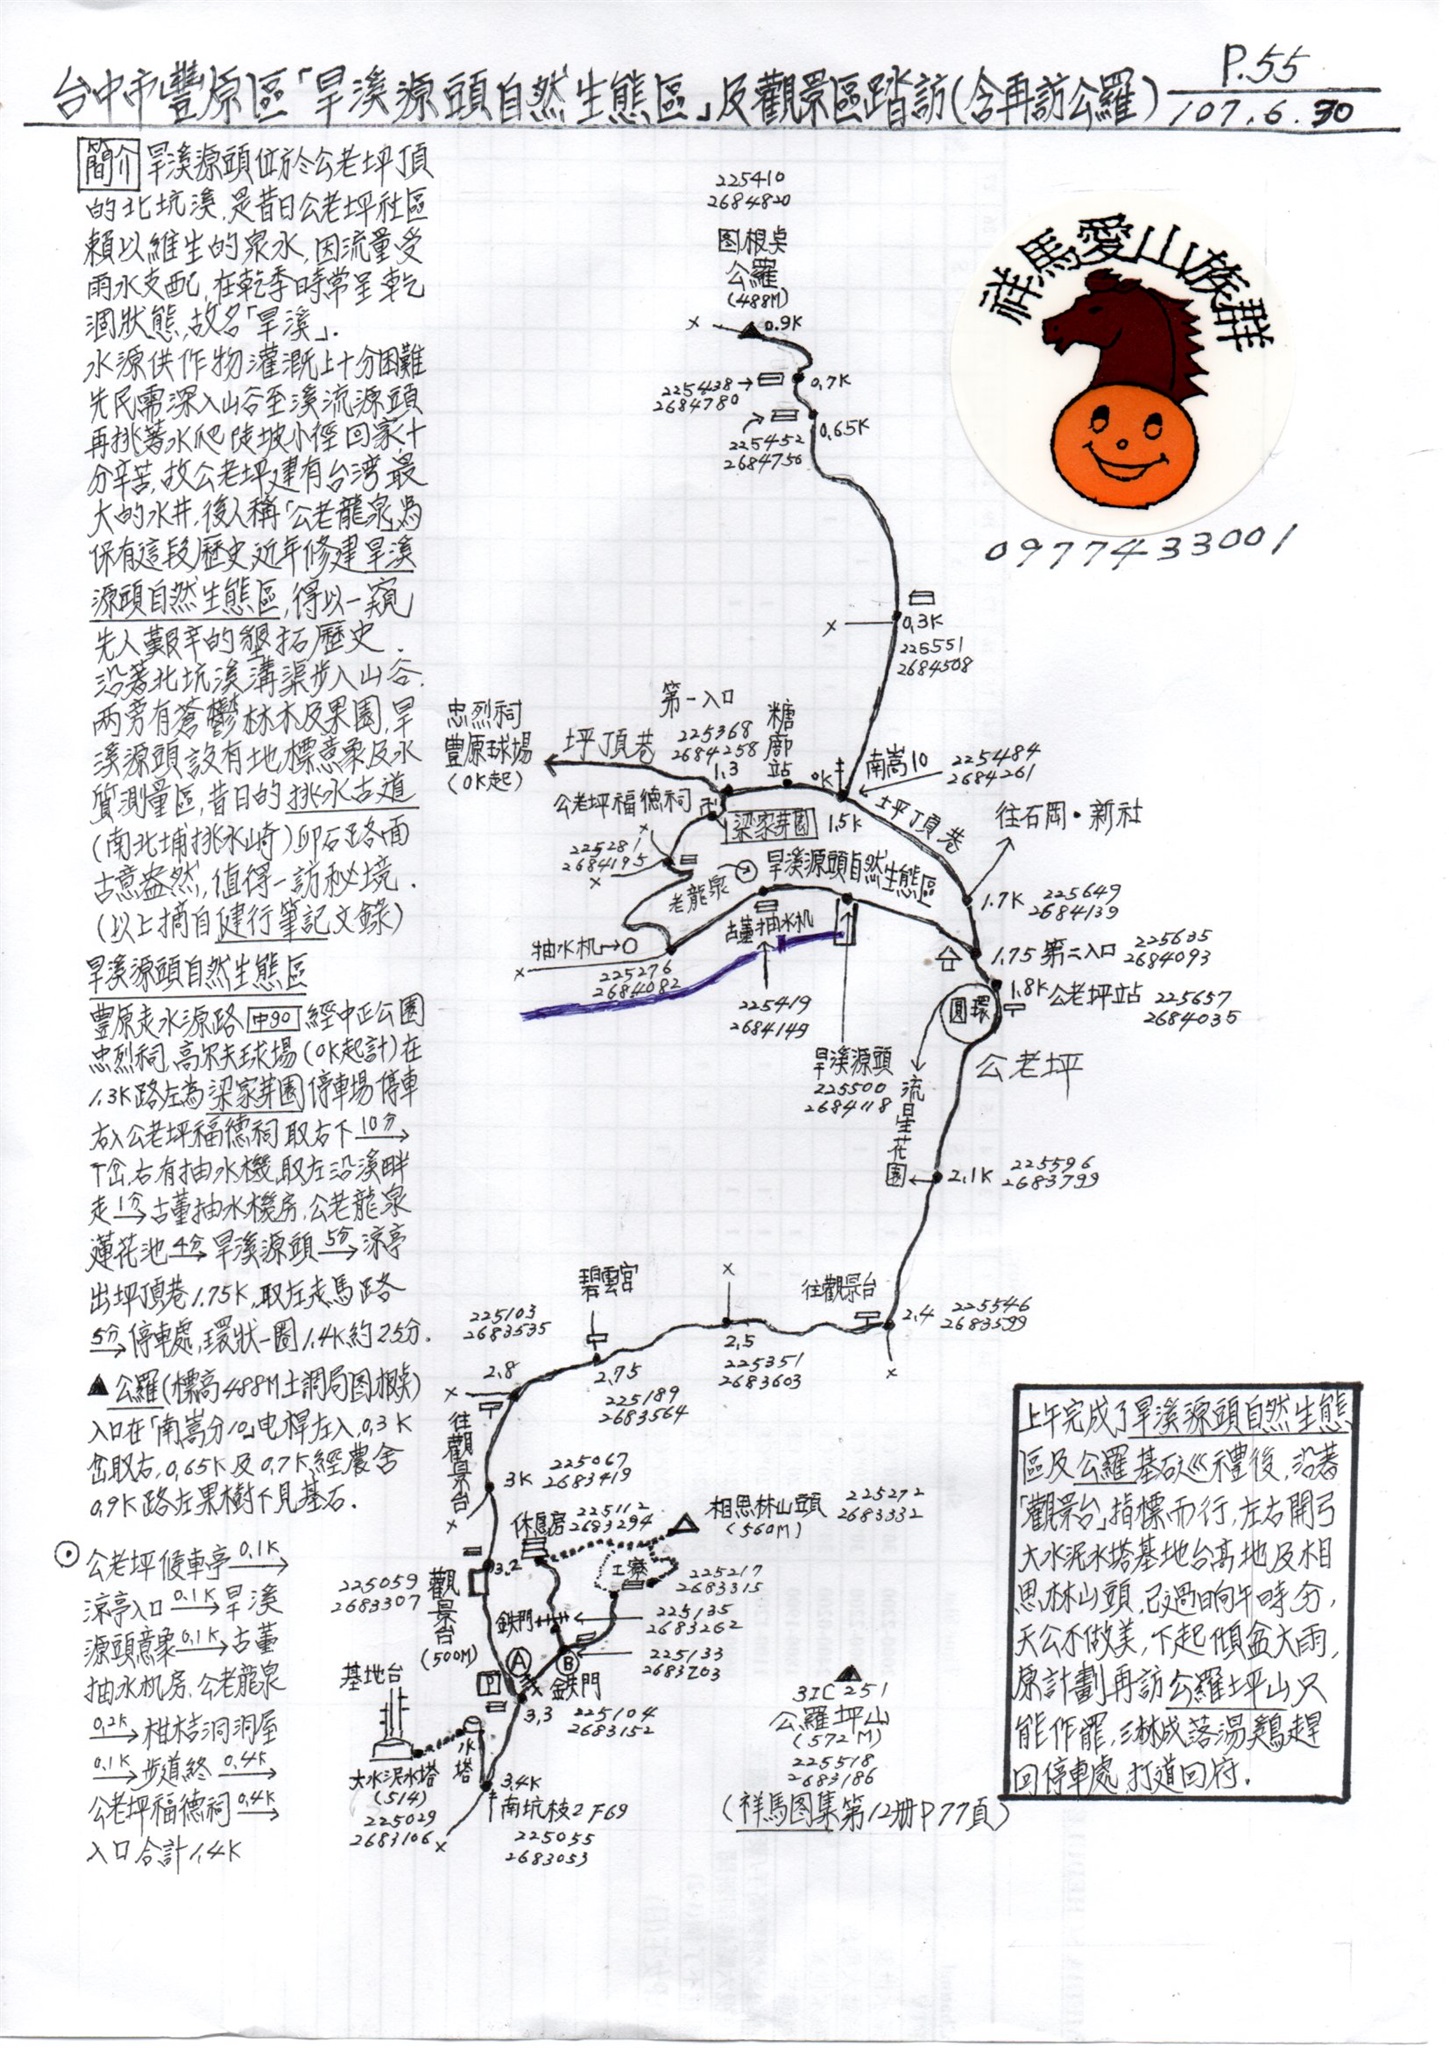 台中市豐原區「旱溪源頭自然生態區」及觀景區踏訪(含再訪公羅)
P.55
107.6.30
簡介 旱溪源頭位於公老坪頂
的北坑溪,是昔日公老坪社區
賴以維生的泉水,因流量受
雨水支配,在乾季時常呈乾
涸狀態,故名「旱溪」.
水源供作物灌溉上十分困難
先民需深入山谷至溪流源頭
再挑著水爬陡坡小徑回家,十
分辛苦,故公老坪建有台湾最
大的水井,後人稱「公老龍泉」為
保有這段歷史近年修建旱溪
源頭自然生態區,得以一窺
先人艱辛的墾拓歷史.
沿著北坑溪溝渠步入山谷,
兩旁有蒼鬱林木及果園,旱
溪源頭設有地標意象及水
質測量區,昔日的挑水古道
(南北埔挑水崎)卵石路面
古意盎然,值得一訪秘境.
(以上摘自健行筆記文錄)
旱溪源頭自然生態區
豐原走水源路 中90 經中正公園
忠烈祠,高尔夫球場(0K起計)在
1.3K路左為梁家芽園停車場停車
右入公老坪福德祠取右下 10分→
下岔,右有抽水機,取左沿溪畔
走1分→古董抽水機房,公老龍泉
蓮花池 4分→旱溪源頭 5分→涼亭
出坪頂巷1.75K,取左走馬路
5分→停車處,環狀一圈1.4K約25分.
▲公羅(標高488M土調局图根桌)
入口在「南嵩分10」电桿左入,0.3K
岔取右,0.65K及0.7K經農舍
0.9K路左果樹下見基石.
⊙公老坪候車亭 0.1K→
涼亭入口 0.1K→旱溪
源頭意象 0.1K→古董
抽水机房,公老龍泉
0.2K→柑桔洞洞屋
0.1K→步道終 0.4K→
公老坪福德祠 0.4K→
入口合計1.4K
225410
2684820
图根桌
公羅
(488M)
x
0.9K
225438→
2684780
0.7K
225452
2684756
0.65K
x
0.3K
225551
2684508
祥馬愛山族群
0977433001
忠烈祠
豐原球場
(0K起)
坪頂巷
第一入口
225368
2684258
1.3
糖廍站
0K
南嵩10
225484
2684261
坪頂巷
往石岡·新社
公老坪福德祠
卍
梁家芽園
1.5K
x
225281
2684195
x
老龍泉
旱溪源頭自然生態區
古董抽水机
抽水机→
x
225276
2684082
225419
2684149
旱溪源頭
225500
2684118
1.7K
225649
2684139
1.75 第二入口
225635
2684093
1.8K 公老坪站
225657
2684035
圓環
公老坪
流星花園
2.1K
225596
2683799
往觀景台
2.4
225546
2683599
x
x
2.5
225351
2683603
碧雲宮
2.75
225189
2683564
225103
2683535
2.8
x
往觀景台
x
3K
225067
2683419
3.2
225059
2683307
觀景台
(500M)
休息房
225112
2683294
相思林山頭
(560M)
225272
2683332
工寮
225217
2683315
鉄門
225135
2683262
225133
2683203
A
B
P
鉄門
3.3
225104
2683152
基地台
水塔
大水泥水塔
(514)
225029
2683106
3.4K
南坑枝2F69
225055
2683053
x
3IC 251
公羅坪山
(572M)
225518
2683186
(祥馬图集第12册P77頁)
上午完成了旱溪源頭自然生態
區及公羅基石巡禮後,沿著
「觀景台」指標而行,左右開弓
大水泥水塔基地台高地及相
思林山頭,已過晌午時分,
天公不做美,下起傾盆大雨,
原計劃再訪公羅坪山只
能作罷,淋成落湯鷄趕
回停車處,打道回府.